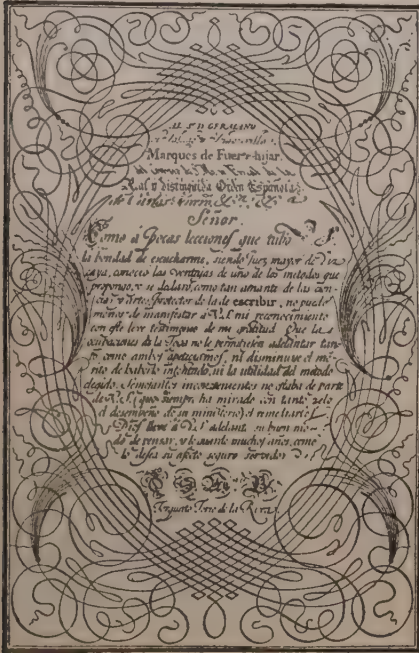 AL Sr. D. GERMANO
Marques de Fuerte-hijar.
Real y distinguida Orden Española
de Carlos
Señor.
Como á Pocas lecciones que tubo V.S.
la bondad de escucharme, siendo Juez mayor de Viz
caya, conocio las ventajas de uno de los metodos que
propongo, y su
cias y Artes, protector de la de escribir, no puedo
menos de manifestar á V.S. mi reconocimiento
con este leve testimonio de mi gratitud. Que las
no le permitiesen adelantar tan
to como ambos apetecíamos, ni disminuye el mé
rito de haberlo intentado, ni la utilidad del metodo
elegido. Semejantes inconvenientes no estaba de parte
de V.S. (que siempre ha mirado con tanto zelo
el desempeño de su ministerio) el remediarlos
Dios lleve á V.S. adelante su buen mo
do de pensar, y le guarde muchos años, como
lo desea su afecto seguro servidor
Torquato Torio de la Riva